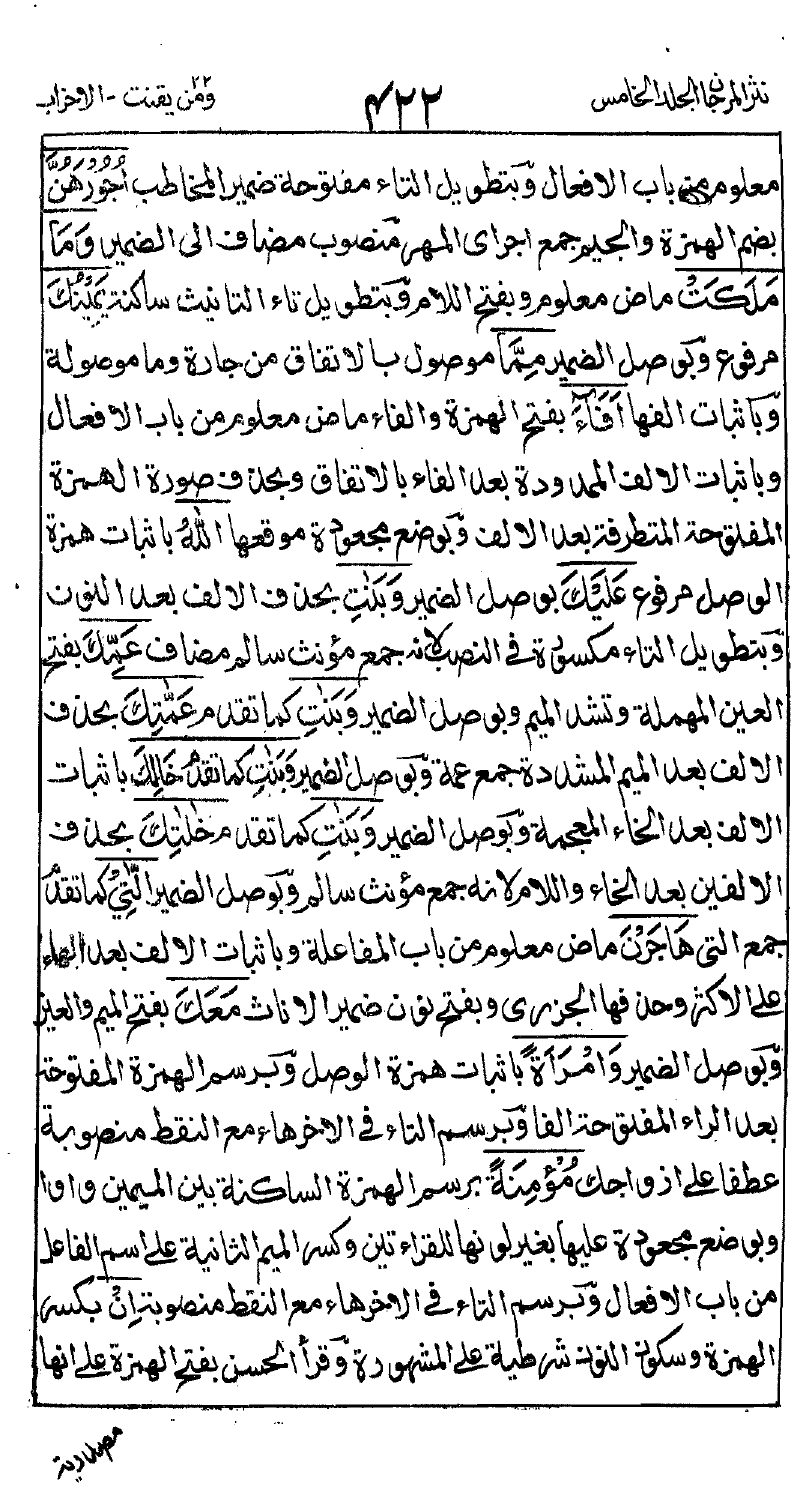 نثر المرجان الجلد الخامس ۴۲۲ ومن يقنت ۲۲ - الاحزاب
معلوم من باب الافعال وبتطويل التاء مفتوحة ضمير المخاطب اُجُوْرَهُنَّ
بضم الهمزة والجيم جمع اجر اى المهر منصوب مضاف الى الضمير وَمَا
مَلَكَتْ ماض معلوم وبفتح اللام وبتطويل تاء التانيث ساكنة يَمِيْنُكَ
مرفوع وبوصل الضمير مِمَّا موصول بالاتفاق من جارة وما موصولة
وباثبات الفها اَفَاءَ بفتح الهمزة والفاء ماض معلوم من باب الافعال
وباثبات الالف الممدودة بعد الفاء بالاتفاق وبحذف صورة الهمزة
المفتوحة المتطرفة بعد الالف وبوضع مجعودة موقعها اللّٰهُ باثبات همزة
الوصل مرفوع عَلَيْكَ بوصل الضمير وَبَنٰتِ بحذف الالف بعد النون
وبتطويل التاء مكسورة فى النصب لانه جمع مؤنث سالم مضاف عَمِّكَ بفتح
العين المهملة وتشد الميم وبوصل الضمير وَبَنٰتِ كما تقدم عَمّٰتِكَ بحذف
الالف بعد الميم المشددة جمع عمة وبوصل الضمير وَبَنٰتِ كما تقدم خَالِكَ باثبات
الالف بعد الخاء المعجمة وبوصل الضمير وَبَنٰتِ كما تقدم خٰلٰتِكَ بحذف
الالفين بعد الخاء واللام لانه جمع مؤنث سالم وبوصل الضمير الّٰتِيْ كما تقدم
جمع التى هَاجَرْنَ ماض معلوم من باب المفاعلة وباثبات الالف بعد الهاء
على الاكثر وحذفها الجزرى وبفتح نون ضمير الاناث مَعَكَ بفتح الميم والعين
وبوصل الضمير وَامْرَاَةً باثبات همزة الوصل وبرسم الهمزة المفتوحة
بعد الراء المفتوحة الفا وبرسم التاء فى الاخرهاء مع النقط منصوبة
عطفا على ازواجك مُؤْمِنَةً برسم الهمزة الساكنة بين الميمين واوا
وبوضع مجعودة عليها بغير لونها للقراءتين وكسر الميم الثانية على اسم الفاعل
من باب الافعال وبرسم التاء فى الاخرهاء مع النقط منصوبة اِنْ بكسر
الهمزة وسكون النون شرطية على المشهورة وقرأ الحسن بفتح الهمزة على انها